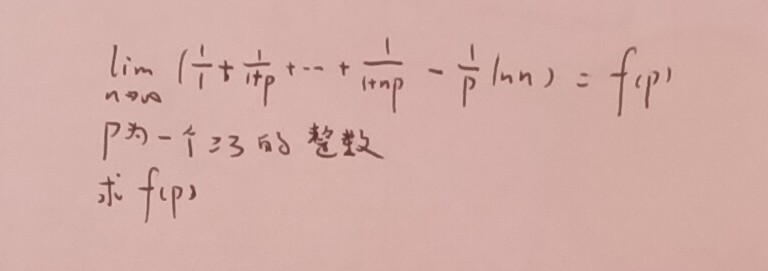 lim n→∞ (1/1 + 1/1+p + ... + 1/1+np - 1/p ln n) = f(p)
p为一个≥3的整数
求f(p)